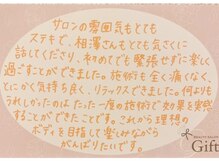 サロンの雰囲気もとても
ステキで、相澤さんもとても気さくに
話してくださり、初めてでも緊張せずに楽しく
過ごすことができました。施術も全く痛くなく、
とにかく気持ち良く、リラックスできました。何よりも
うれしかったのは たった一度の施術で効果を実感
することができたことです。これから理想の
ボディを目指して楽しみながら
がんばりたいです。
Gift